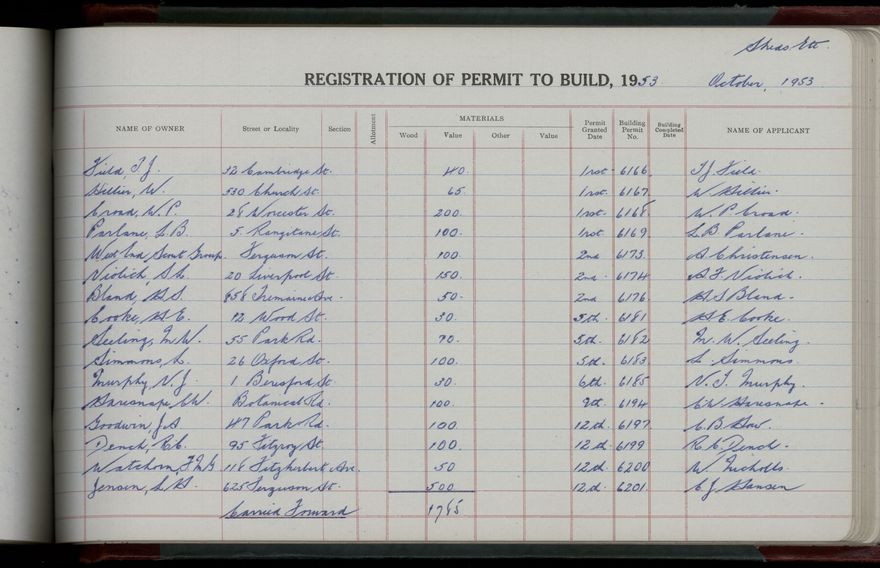 Sheds Etc.
REGISTRATION OF PERMIT TO BUILD, 1953 October, 1953
NAME OF OWNER Street or Locality Section Allotment MATERIALS Wood Value Other Value Permit Granted Date Building Permit No. Building Completed Date NAME OF APPLICANT
Field, T. J. 52 Cambridge St. 40. 1rst 6166 T J Field.
Hillier, W. 530 Church St. 65. 1rst. 6167 W Hillier.
Croad, W. P. 28 Worcester St. 200. 1rst. 6168 W. P. Croad.
Parlane, L. B. 5. Rangitane St. 100. 1rst 6169 L. B. Parlane.
West End Scout Group. Ferguson St. 100 2nd 6173. A Christensen.
Violich, 20 Liverpool St. 150. 2nd. 6174 A. F. Violich.
Bland, H S. 858 Tremaine Ave. 50. 2nd 6176. H S Bland.
Cooke, H E. 12 Wood St. 30. 5th. 6181 H E. Cooke.
Seeling, M. W. 55 Park Rd. 70. 5th. 6182 M. W. Seeling.
Simmons, L. 26 Oxford St. 100. 5th. 6183 L. Simmons.
Murphy, V. J. 1 Beresford St. 30. 6th. 6185 V. J. Murphy.
Haresnape, C W. Botanical Rd. 100. 9th. 6194 C W Haresnape.
Goodwin, J. A 47 Park Rd. 100 12th. 6197 C. B.
Dench, R. C. 95 Fitzroy St. 100. 12th. 6199 R. C. Dench.
Watchorn, 118 Fitzherbert Ave. 50 12th. 6200 W. Nicholls.
Jensen, L H. 625 Ferguson St. 500 12th. 6201. C J Hansen
Carried Forward 1785